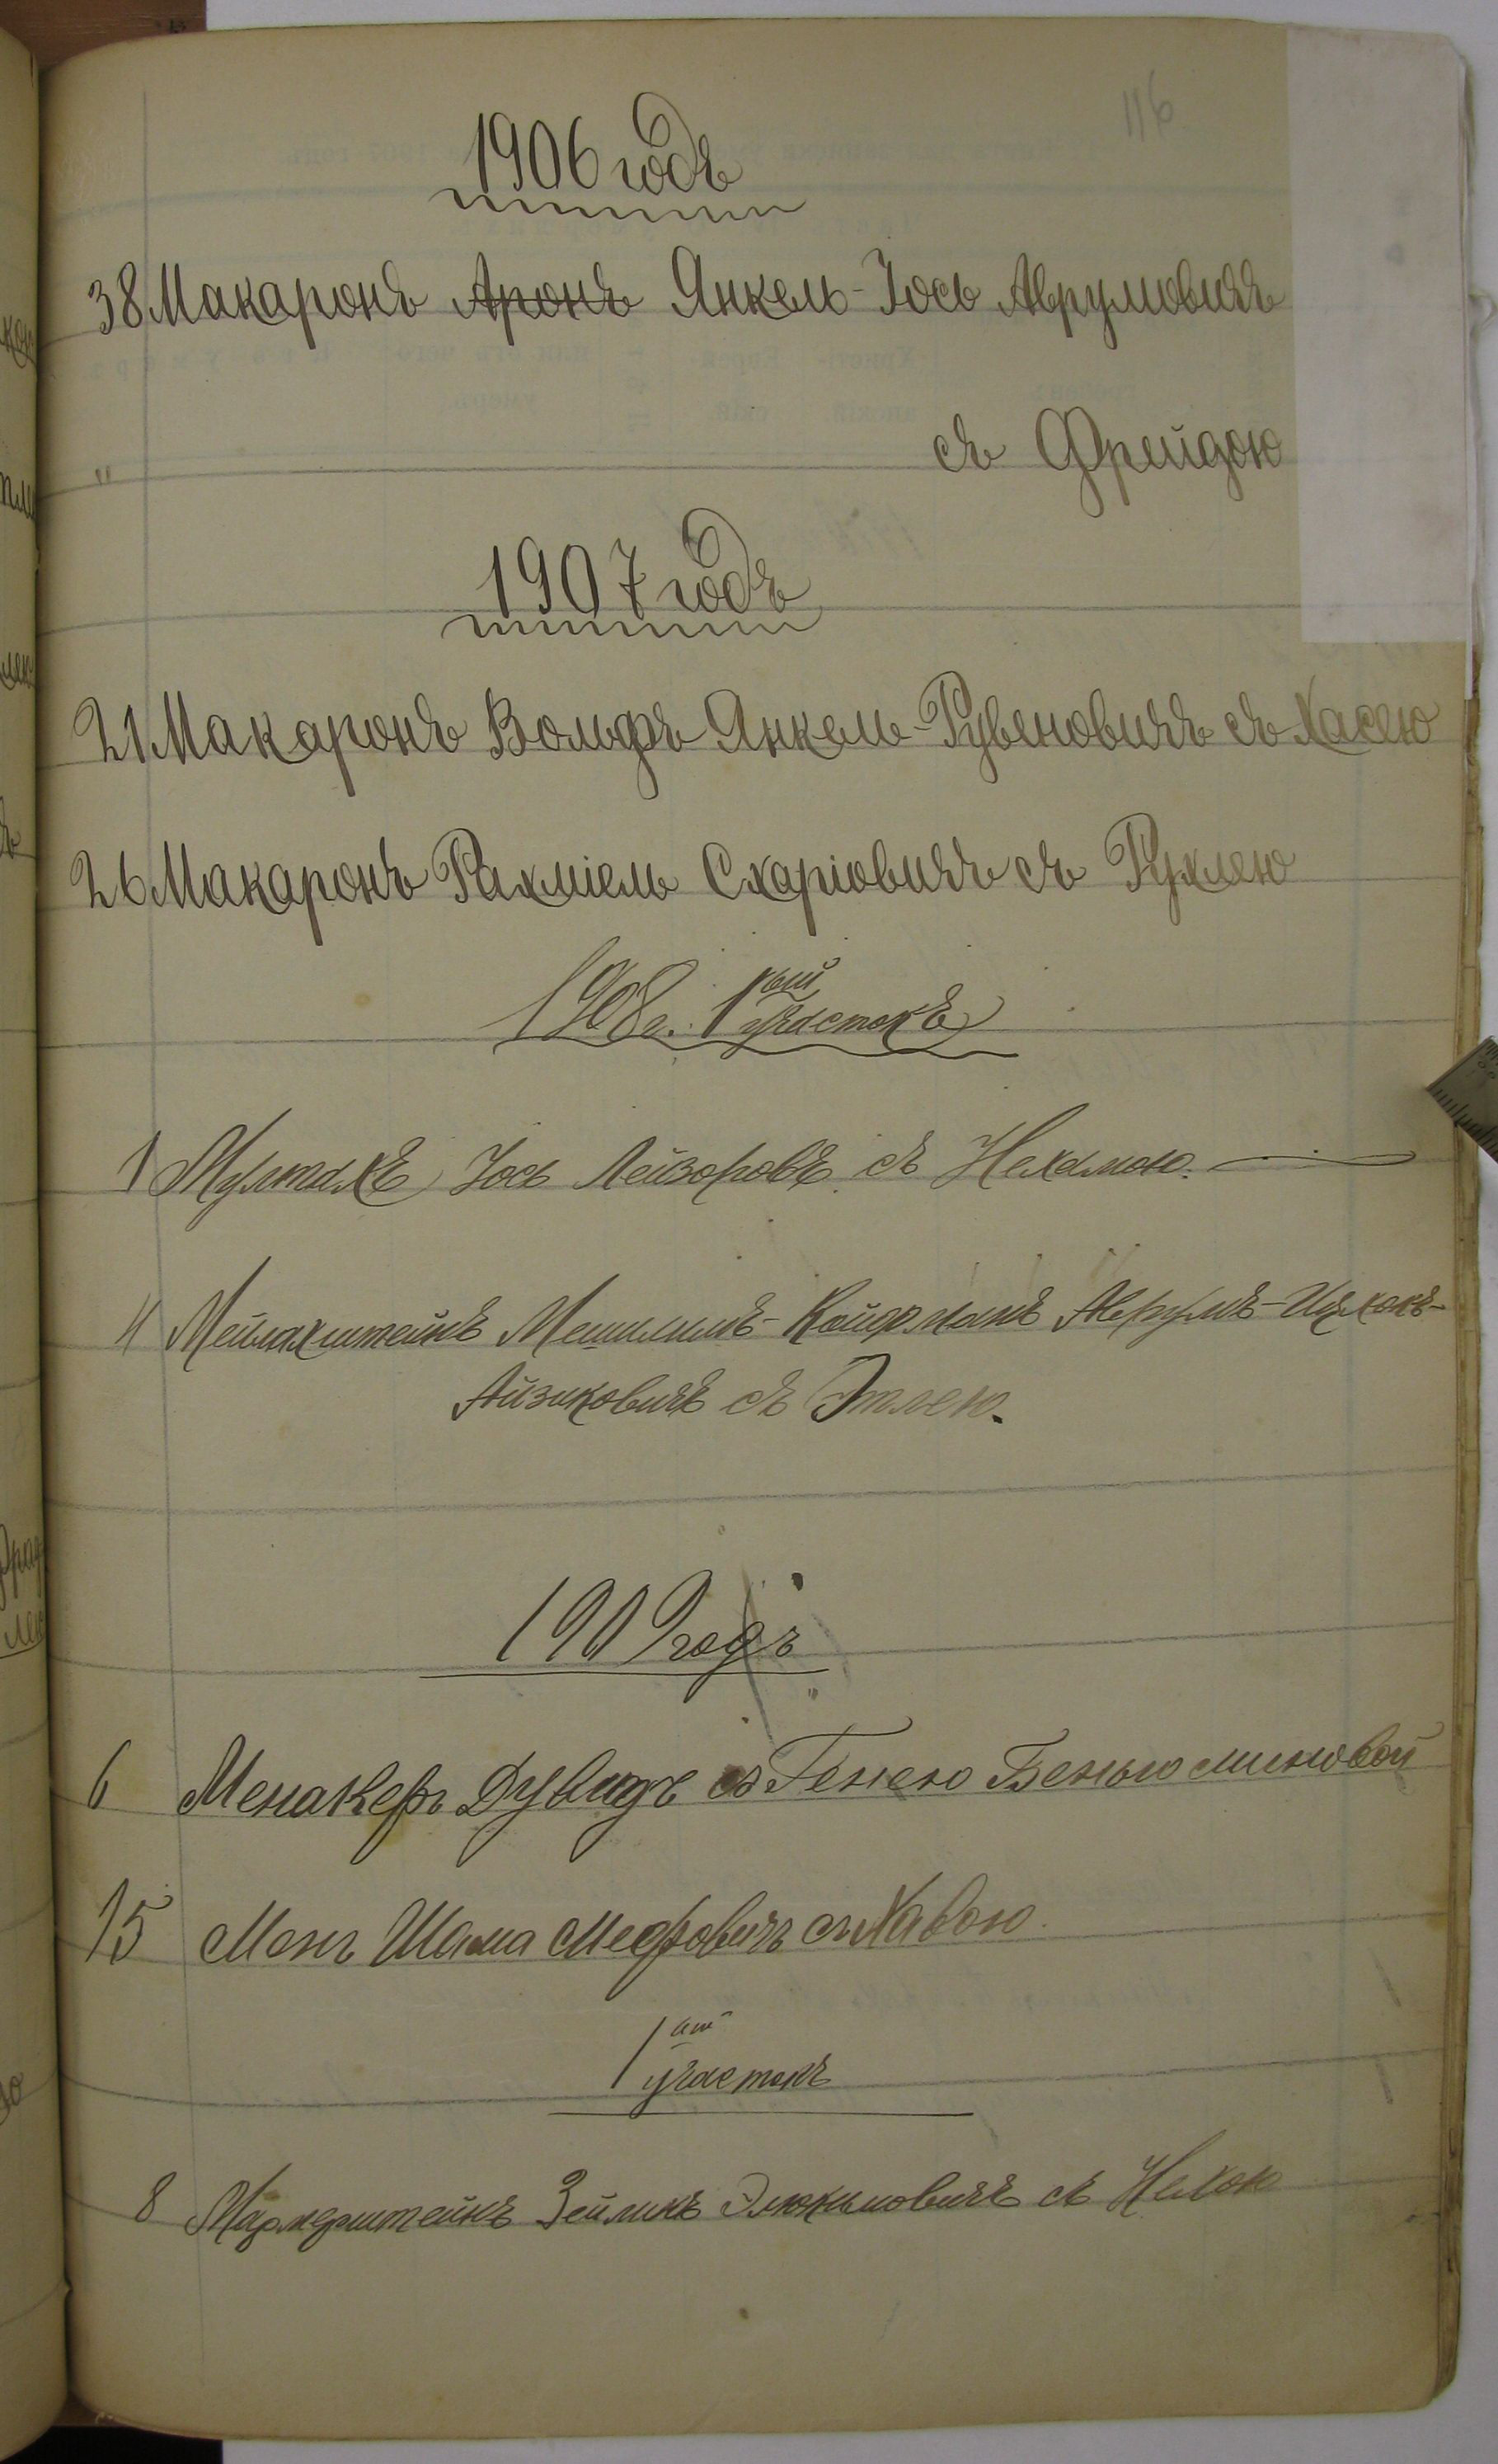 116
1906 годъ
38 Макаронъ Аронъ Янкель-Іось Аврумовичъ
" съ Фрейдою
1907 годъ
21 Макаронъ Вольфъ Янкель-Рувеновичъ съ Хасею
26 Макаронъ Рахміель Схаріовичъ съ Рухлею
1908 г. 1вый участокъ
1 Іось Лейзоровъ съ Нехамою.
4 Мейлахштейнъ Авrумъ-Ицхокъ-
Айзиковичъ съ Этлею.
1909 годъ
6 Менакеръ Дувидъ съ Генею Беньюминовой
15 Менъ Шама съ Хавою.
1ый
участокъ
8 Зейликъ съ Нехою